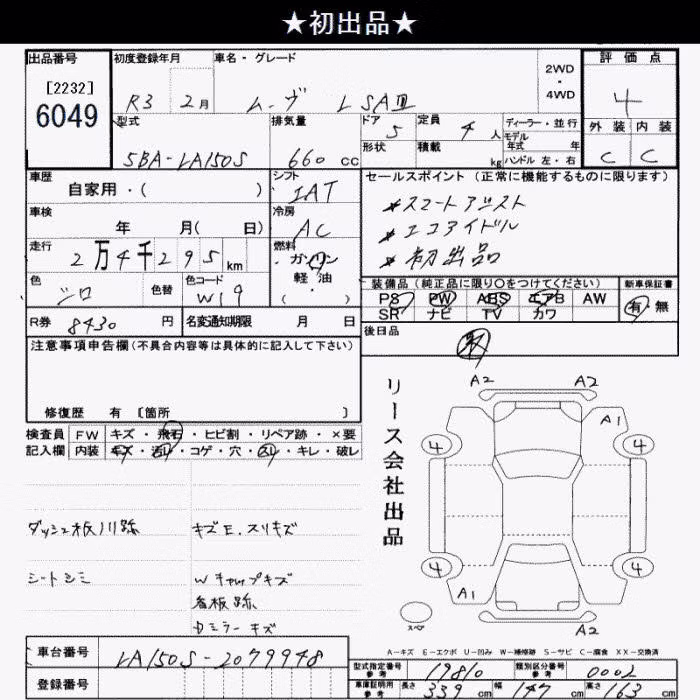 ★初出品★
出品番号 初度登録年月 車名・グレード 2WD・4WD 評価点
[2232]
6049
R3 2月 ムーヴ L SAⅢ 4
型式 排気量 ドア 定員 ディーラー・並行 外装 内装
5BA-LA150S 660 cc 5 4人 モデル年式 年 C C
形状 積載 kg ハンドル 左・右
車歴 シフト セールスポイント(正常に機能するものに限ります)
自家用・( ) IAT
*スマートアシスト
車検 冷房
年 月( 日) AC
*エコアイドル
走行 燃料
2万4千295km ガソリン
軽・油
( )
*初出品
色 色替 色コード
シロ W19
装備品(純正品に限り○をつけてください) 新車保証書
PS PW ABS エアB AW 有 無
SR ナビ TV カワ
R券 8430 円 名変通知期限 月 日
後日品
注意事項申告欄(不具合内容等は具体的に記入して下さい)
修復歴 有 [箇所 ]
検査員記入欄 FW キズ・飛石・ヒビ割・リペア跡・×要
内装 キズ・汚れ・コゲ・穴・スレ・キレ・破レ
ダッシュ板ハリ跡 キズE.スリキズ
シートシミ Wキャップキズ
看板跡
ドミラーキズ
リース会社出品
A2 A2
A1
4 4
4 4
A1
A2
スペア
A-キズ E-エクボ U-凹み W-補修跡 S-サビ C-腐食 XX-交換済
車台番号 LA150S-2079948
登録番号
型式指定番号 参考 19810 類別区分番号 参考 0002
車庫証明用 参考 長さ 339 cm 幅 147 cm 高さ 163 cm